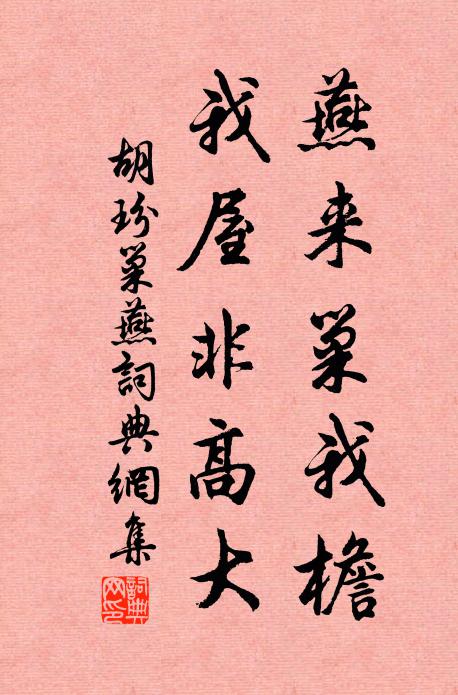 燕来巢我檐
我屋非高大
胡玢巢燕詞典網集
詞典网印